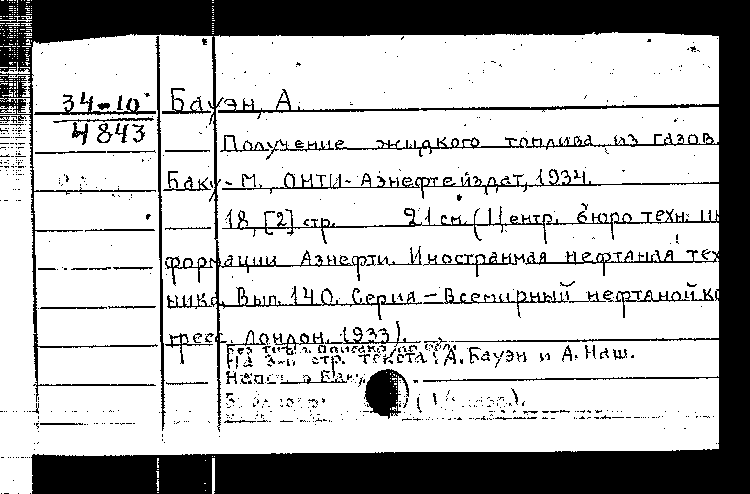 34-10
4843
Бауэн, А.
Получение жидкого топлива из газов.
Баку - М., ОНТИ - Азнефтеиздат, 1934.
18, [2] стр. 21 см. (Центр. бюро техн. ин
формации Азнефти. Иностранная нефтяная тех
ника. Вып. 140. Серия - Всемирный нефтяной ко
гресс. Лондон. 1933).
Без тит. л. Описано по обл.
На 3-й стр. текста: А. Бауэн и А. Наш.
Напеч. в Баку